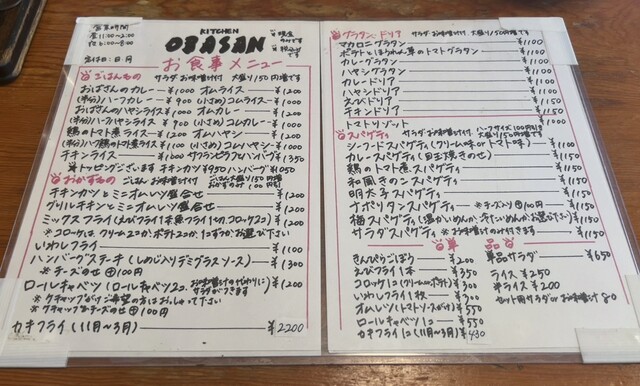 営業時間
昼11:00~2:00
夜6:00~8:00
定休日:日・月
KITCHEN
OBASAN
お食事メニュー
ごはんもの サラダ・お味噌汁付 大盛り150円増です
おばさんのカレー ¥1000 オムライス ¥1200
(半分)ハーフカレー ¥900 (小さめ)コムライス ¥1000
おばさんのハヤシライス ¥1000 オムカレー ¥1200
(半分)ハーフハヤシライス ¥900 (小さめ)コムカレー ¥1000
鶏のトマト煮ライス ¥1100 オムハヤシ ¥1200
(半分)ハーフ鶏のトマト煮ライス ¥1000 (小さめ)コムハヤシ ¥1000
チキンライス ¥1000 サフランピラフ ¥1350
※トッピングございます チキンカツ¥950 ハンバーグ¥1050
おかずもの ごはん お味噌汁付
チキンカツとミニオムレツ盛合せ ¥1200
グリルチキンとミニオムレツ盛合せ ¥1200
ミックスフライ(えびフライ1本 魚フライ1つ コロッケ2コ) ¥1200
※コロッケは、クリーム2コか、ポテト2コか、1こずつか お選び下さい
いわしフライ ¥1100
ハンバーグステーキ(しめじ入りデミグラスソース) ¥1300
※チーズのせ ⊕100円
ロールキャベツ(ロールキャベツ2コ お味噌汁の代わりにサラダがつきます) ¥1200
※ケチャップがけご希望の方はおしゃって下さい
※ケチャップがけチーズのせ ⊕100円
カキフライ(11月~3月) ¥2200
グラタン・ドリア サラダ・お味噌汁付 大盛り150円増です
マカロニグラタン ¥1100
ポテトとほうれん草のトマトグラタン ¥1100
カレーグラタン ¥1100
ハヤシグラタン ¥1100
カレードリア ¥1100
ハヤシドリア ¥1100
えびドリア ¥1150
チキンドリア ¥1150
トマトリゾット ¥1000
スパゲティ サラダ・お味噌汁付 ハーフサイズ100円引き 大盛り150円増です
シーフードスパゲティ(クリーム味 or トマト味) ¥1150
カレースパゲティ(目玉焼きのせ) ¥1150
鶏のトマト煮スパゲティ ¥1150
和風きのこスパゲティ ¥1150
明太子スパゲティ ¥1150
ナポリタンスパゲティ ※チーズのせ⊕100円 ¥1150
梅スパゲティ(温かいめんか、冷たいめんか、お選び下さい) ¥1150
サラダスパゲティ ※お味噌汁のみ付きます ¥1150
単品
きんぴらごぼう ¥200
えびフライ1本 ¥350
コロッケ1コ(クリームorポテト) ¥350
いわしフライ1枚 ¥300
オムレツ(トマトソースがけ) ¥550
ロールキャベツ1コ ¥550
カキフライ1コ(11月~3月) ¥430
単品サラダ ¥650
ライス ¥250
半ライス ¥200
セット用サラダ or お味噌汁 80